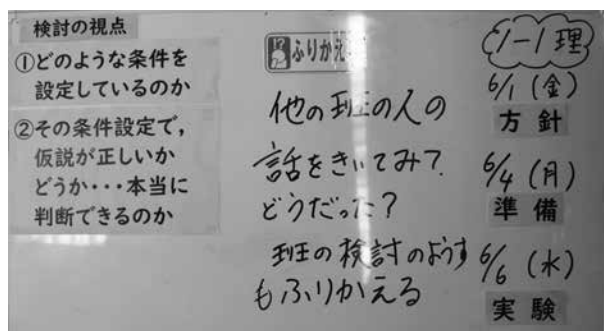 検討の視点
①どのような条件を
設定しているのか
②その条件設定で，
仮説が正しいか
どうか・・・本当に
判断できるのか
ふりかえ
他の班の人の
話をきいてみて
どうだった？
班の検討のようす
もふりかえる
1-1 理
6/1 (金)
方針
6/4 (月)
準備
6/6 (水)
実験